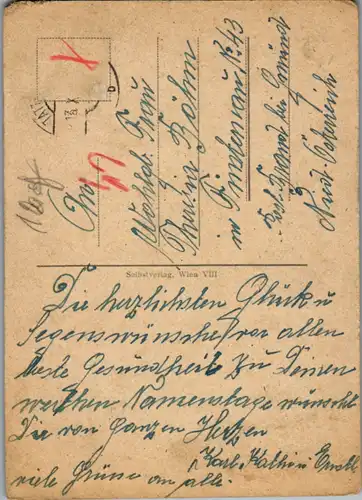 An
Wohlgb. Frau
Thekla Böhm
in Findenau Nr. 43
Post Brand bei Gmünd
Nied. Österreich
Selbstverlag, Wien VIII
Die herzlichsten Glück u
Segenswünsche vor allen
beste Gesundheit zu Deinen
werthen Namenstage wünscht
Dir von ganzen Herzen
Karl, Kathi u
viele Grüsse an alle.